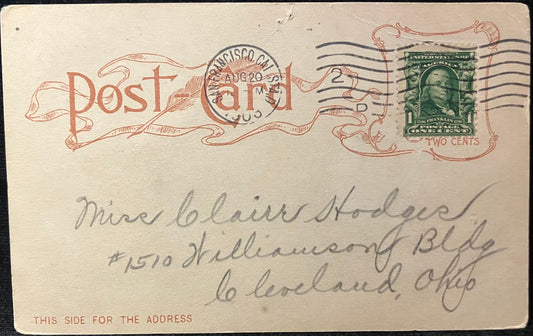 Post Card
SAN FRANCISCO, CAL.
AUG 20
M
190
UNITED STATES OF
AMERICA
FRANKLIN
1 POSTAGE 1
ONE CENT
TWO CENTS
Miss Clairr Hodges
#1510 Williamson Bldg
Cleveland, Ohio
THIS SIDE FOR THE ADDRESS